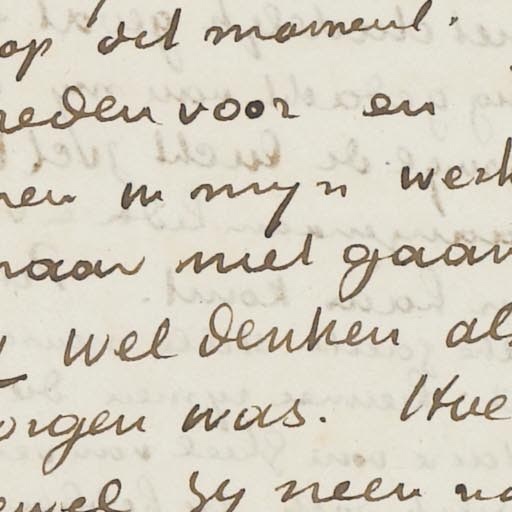 op dit moment.
reden voor en
en in mijn werk
maar niet gaan
wel denken als
orgen was. Hoe
ewel zij neen